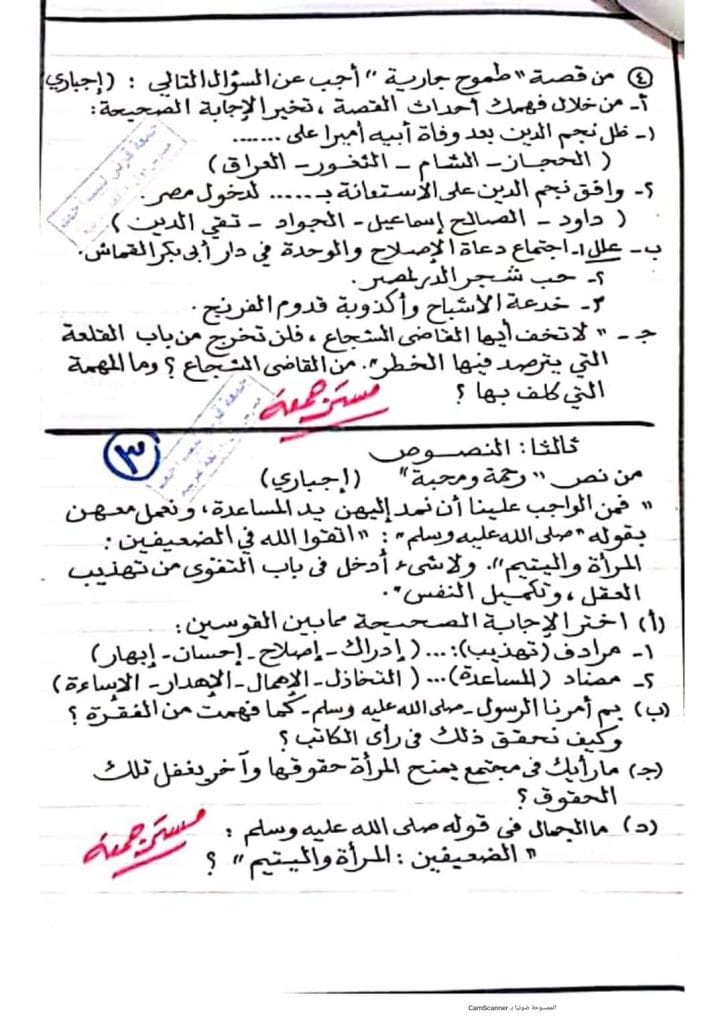 ٤ من قصة "طموح جارية" أجب عن السؤال التالي : (إجباري)
أ- من خلال فهمك أحداث القصة ، تخير الإجابة الصحيحة:
١- ظل نجم الدين بعد وفاة أبيه أميرا على .......
( الحجاز - الشام - الثغور - العراق )
٢- وافق نجم الدين على الاستعانة بـ...... لدخول مصر.
( داود - الصالح إسماعيل - الجواد - تقي الدين )
ب- علل ١- اجتماع دعاة الإصلاح والوحدة في دار أبى بكر القماش.
٢- حب شجر الدر لمصر.
٣- خدعة الأشباح وأكذوبة قدوم الفرنج.
جـ- " لا تخف أيها القاضى الشجاع ، فلن تخرج من باب القلعة
التي يترصد فيها الخطر". من القاضى الشجاع ؟ وما المهمة
التي كلف بها ؟
مستر جمعة
ثالثا: النصوص
٣
من نص " رحمة ومحبة " (إجباري)
" فمن الواجب علينا أن نمد إليهن يد المساعدة، ونعمل معهن
بقوله "صلى الله عليه وسلم": "اتقوا الله في الضعيفين:
المرأة واليتيم". ولا شىء أدخل فى باب التقوى من تهذيب
العقل ، وتكميل النفس".
(أ) اختر الإجابة الصحيحة مما بين القوسين:
١- مرادف (تهذيب):... ( إدراك - إصلاح - إحسان - إبهار)
٢- مضاد (المساعدة)... ( التخاذل - الإهمال - الإهدار - الإساءة)
(ب) بم أمرنا الرسول - صلى الله عليه وسلم - كما فهمت من الفقرة ؟
وكيف نحقق ذلك فى رأى الكاتب ؟
(جـ) ما رأيك فى مجتمع يمنح المرأة حقوقها وآخر يغفل تلك
الحقوق ؟
(د) ما الجمال فى قوله صلى الله عليه وسلم :
" الضعيفين : المرأة واليتيم " ؟
مستر جمعة
الممسوحة ضوئيا بـ CamScanner